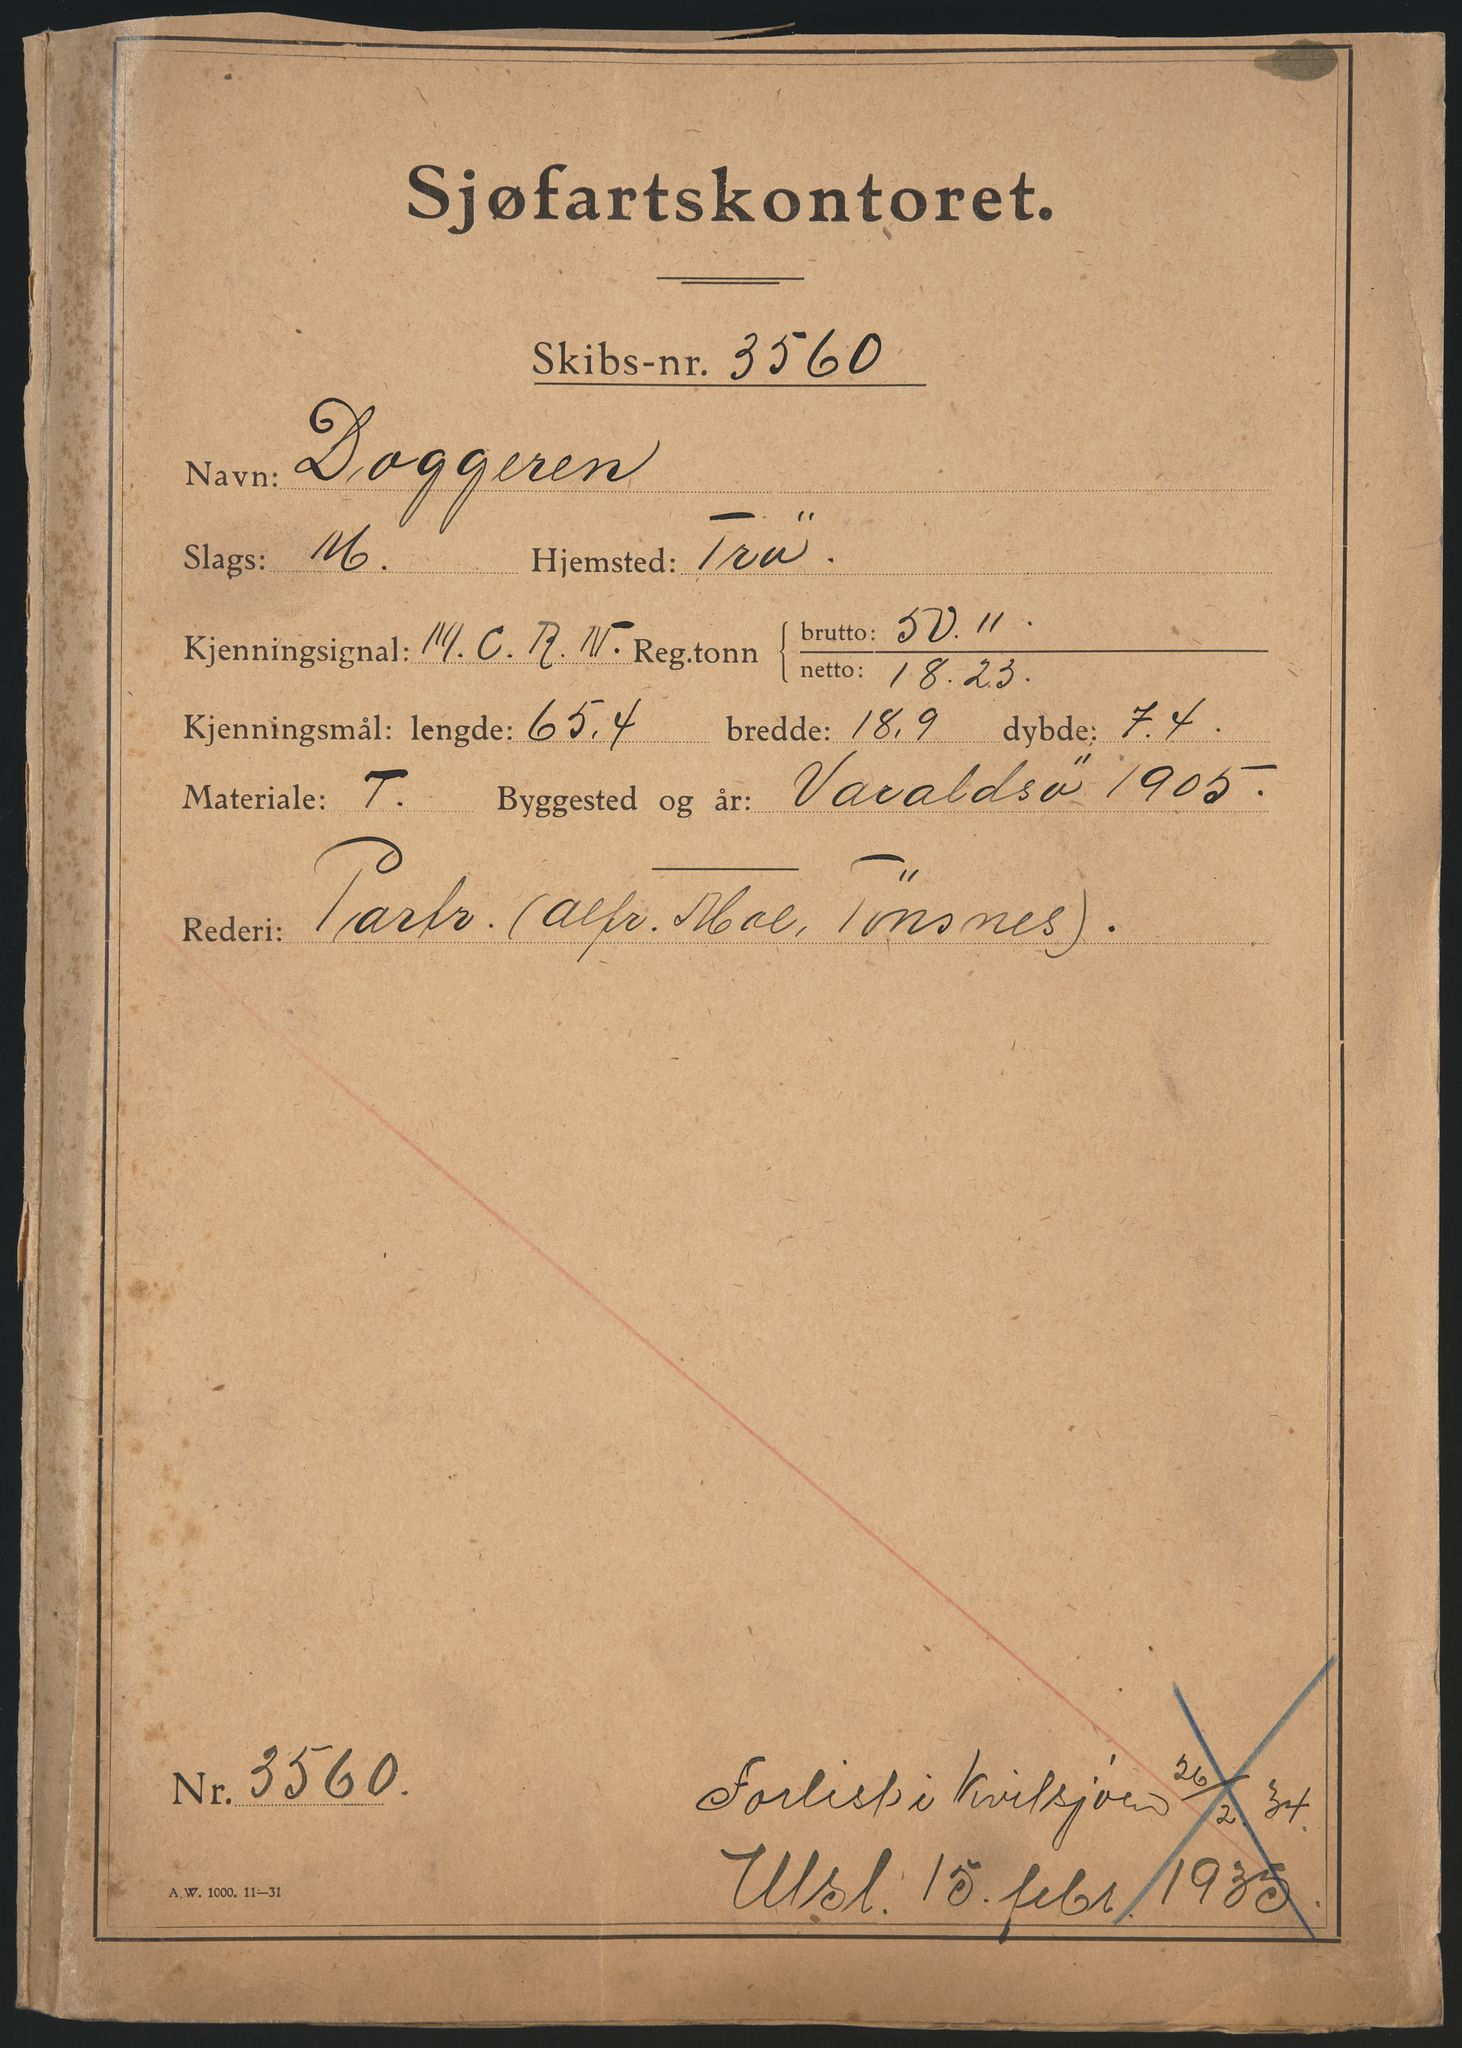 Sjøfartskontoret.
Skibs-nr. 3560
Navn: Doggeren
Slags: M. Hjemsted: Trö.
Kjenningsignal: M. C. R. N. Reg.tonn brutto: 50.11.
netto: 18.23.
Kjenningsmål: lengde: 65,4 bredde: 18,9 dybde: 7.4.
Materiale: T. Byggested og år: Varaldsö 1905.
Rederi: Partr. (Alfr. Moe, Tönsnes).
Nr. 3560.
Forlist i Kvitsjöen 26/2 34.
Utsl. 15. febr. 1935.
A.W. 1000. 11—31